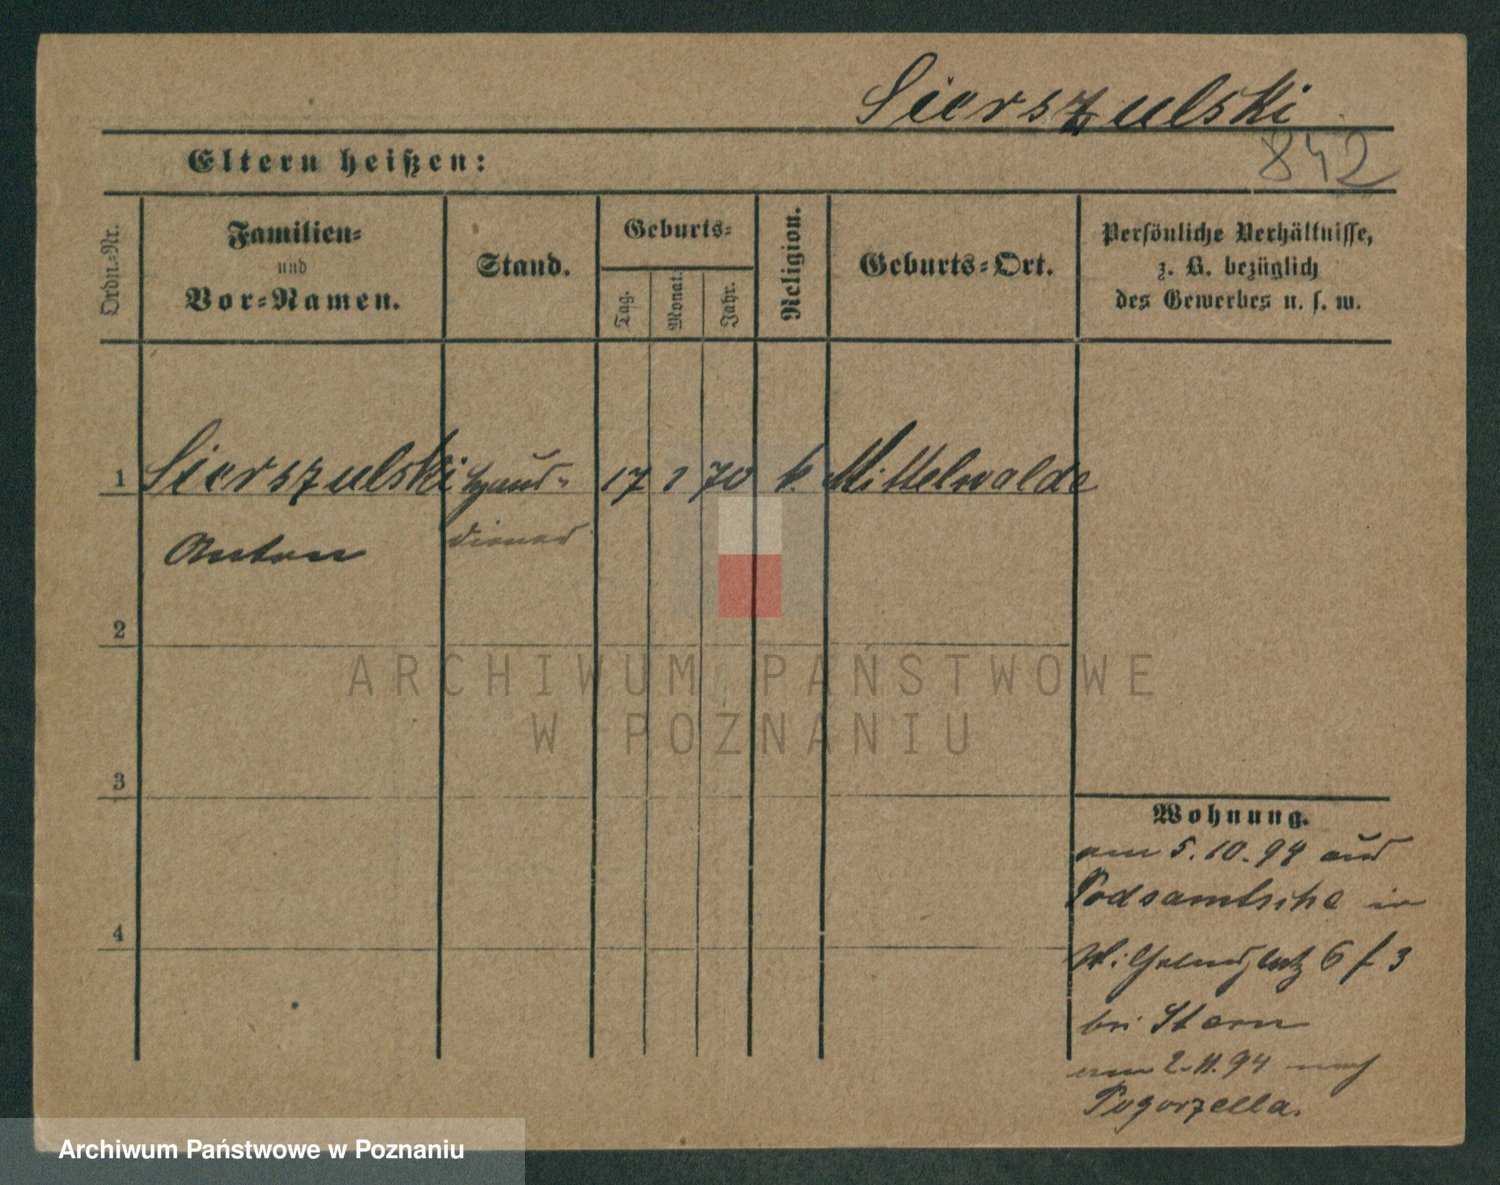 Sierszulski
842
Eltern heißen:
Ordn.-Nr.
Familien-
und
Vor-Namen.
Stand.
Geburts-
Tag.
Monat.
Jahr.
Religion.
Geburts-Ort.
Persönliche Verhältnisse,
z. B. bezüglich
des Gewerbes u. s. w.
1 Sierszulski Haus- 17 1 70 k. Mittelwalde
Anton diener
2
3
4
Wohnung.
am 5.10.94 aus
Podsamtsche in
Wilhelmsplatz 6 f 3
bei Stern
am 2.11.94 nach
Pogorzella.
ARCHIWUM PAŃSTWOWE
W POZNANIU
Archiwum Państwowe w Poznaniu